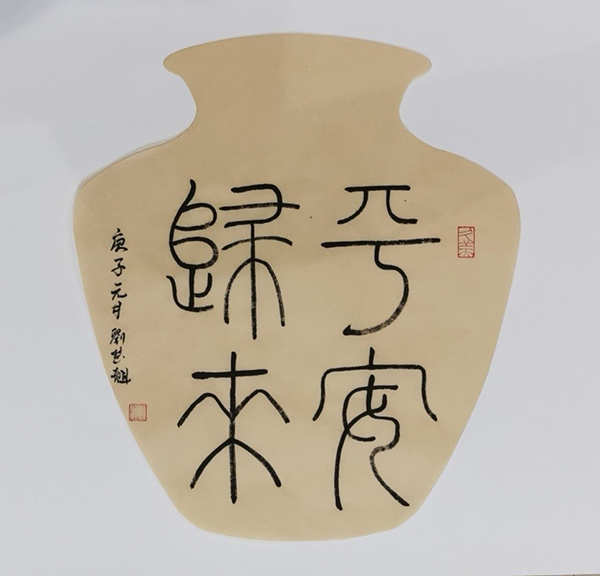 平安
歸來
庚子元月劉